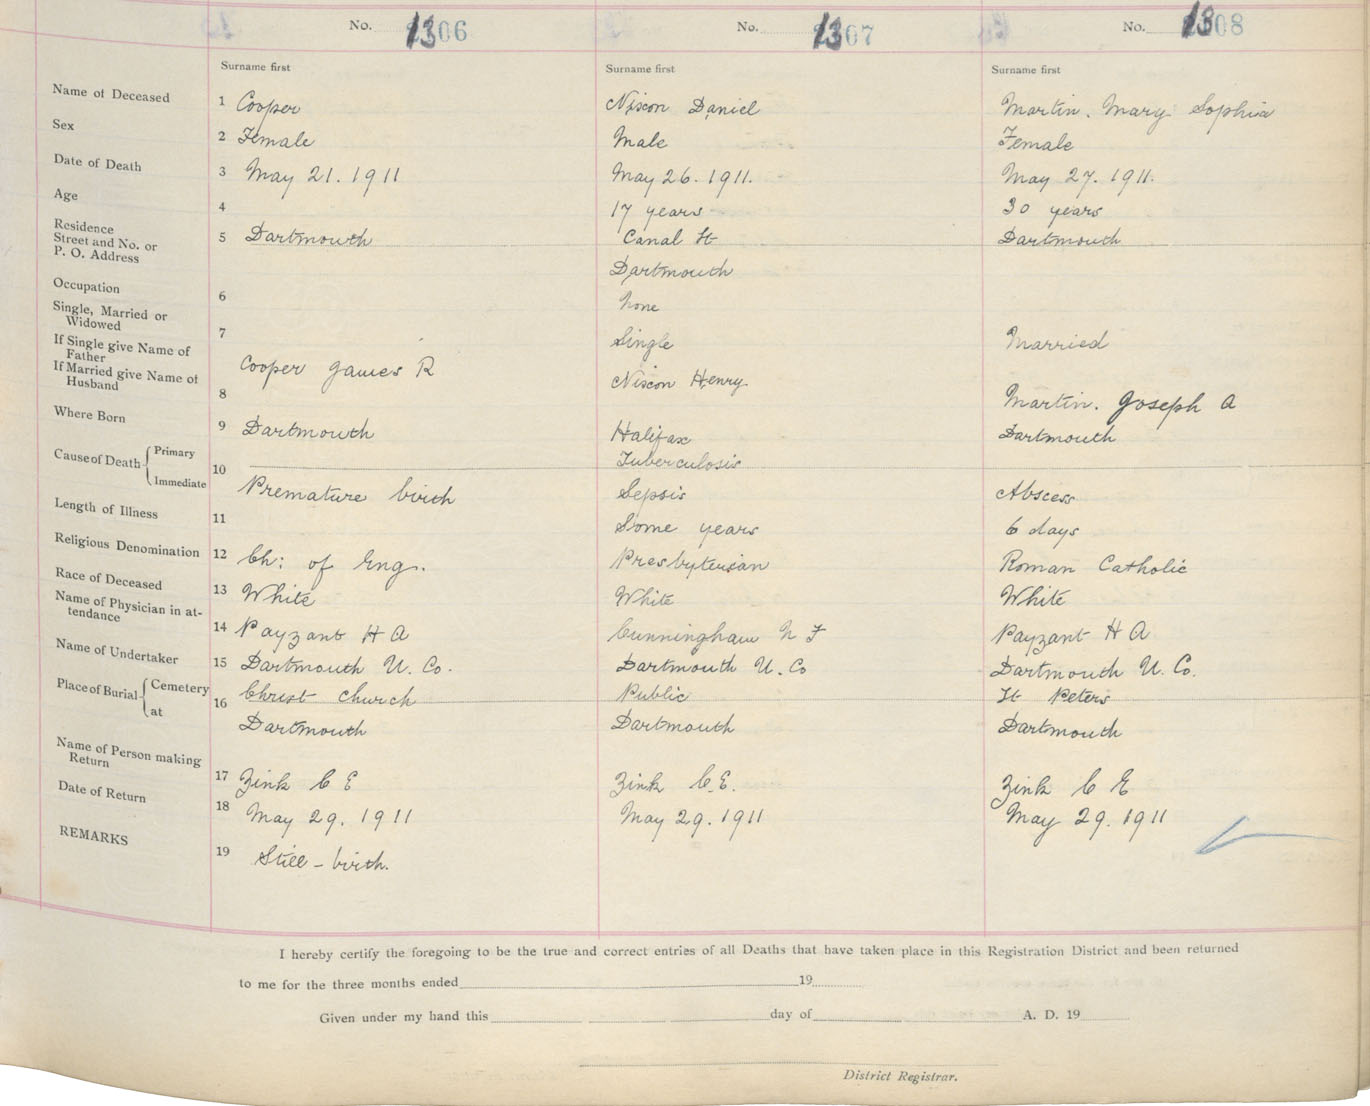 No. 1306 No. 1307 No. 1308
Surname first Surname first Surname first
Name of Deceased 1 Cooper Nixon Daniel Martin. Mary Sophia
Sex 2 Female Male Female
Date of Death 3 May 21. 1911 May 26. 1911. May 27. 1911.
Age 4 17 years 30 years
Residence
Street and No. or
P. O. Address
5 Dartmouth Canal St Dartmouth
Dartmouth
Occupation 6 None
Single, Married or
Widowed
7 Single Married
If Single give Name of
Father
If Married give Name of
Husband
8 Cooper James R Nixon Henry Martin. Joseph A
Where Born 9 Dartmouth Halifax Dartmouth
Cause of Death Primary Tuberculosis
10
Immediate Premature birth Sepsis Abscess
Length of Illness 11 Some years 6 days
Religious Denomination 12 Ch: of Eng. Presbyterian Roman Catholic
Race of Deceased 13 White White White
Name of Physician in at-
tendance
14 Payzant H A Cunningham N F Payzant H A
Name of Undertaker 15 Dartmouth U. Co. Dartmouth U. Co Dartmouth U. Co.
Place of Burial Cemetery 16 Christ Church Public St Peters
at Dartmouth Dartmouth Dartmouth
Name of Person making
Return
17 Zink C E Zink C. E. Zink C E
Date of Return 18 May 29. 1911 May 29. 1911 May 29. 1911
REMARKS 19 Still - birth.
I hereby certify the foregoing to be the true and correct entries of all Deaths that have taken place in this Registration District and been returned
to me for the three months ended 19
Given under my hand this day of A. D. 19
District Registrar.